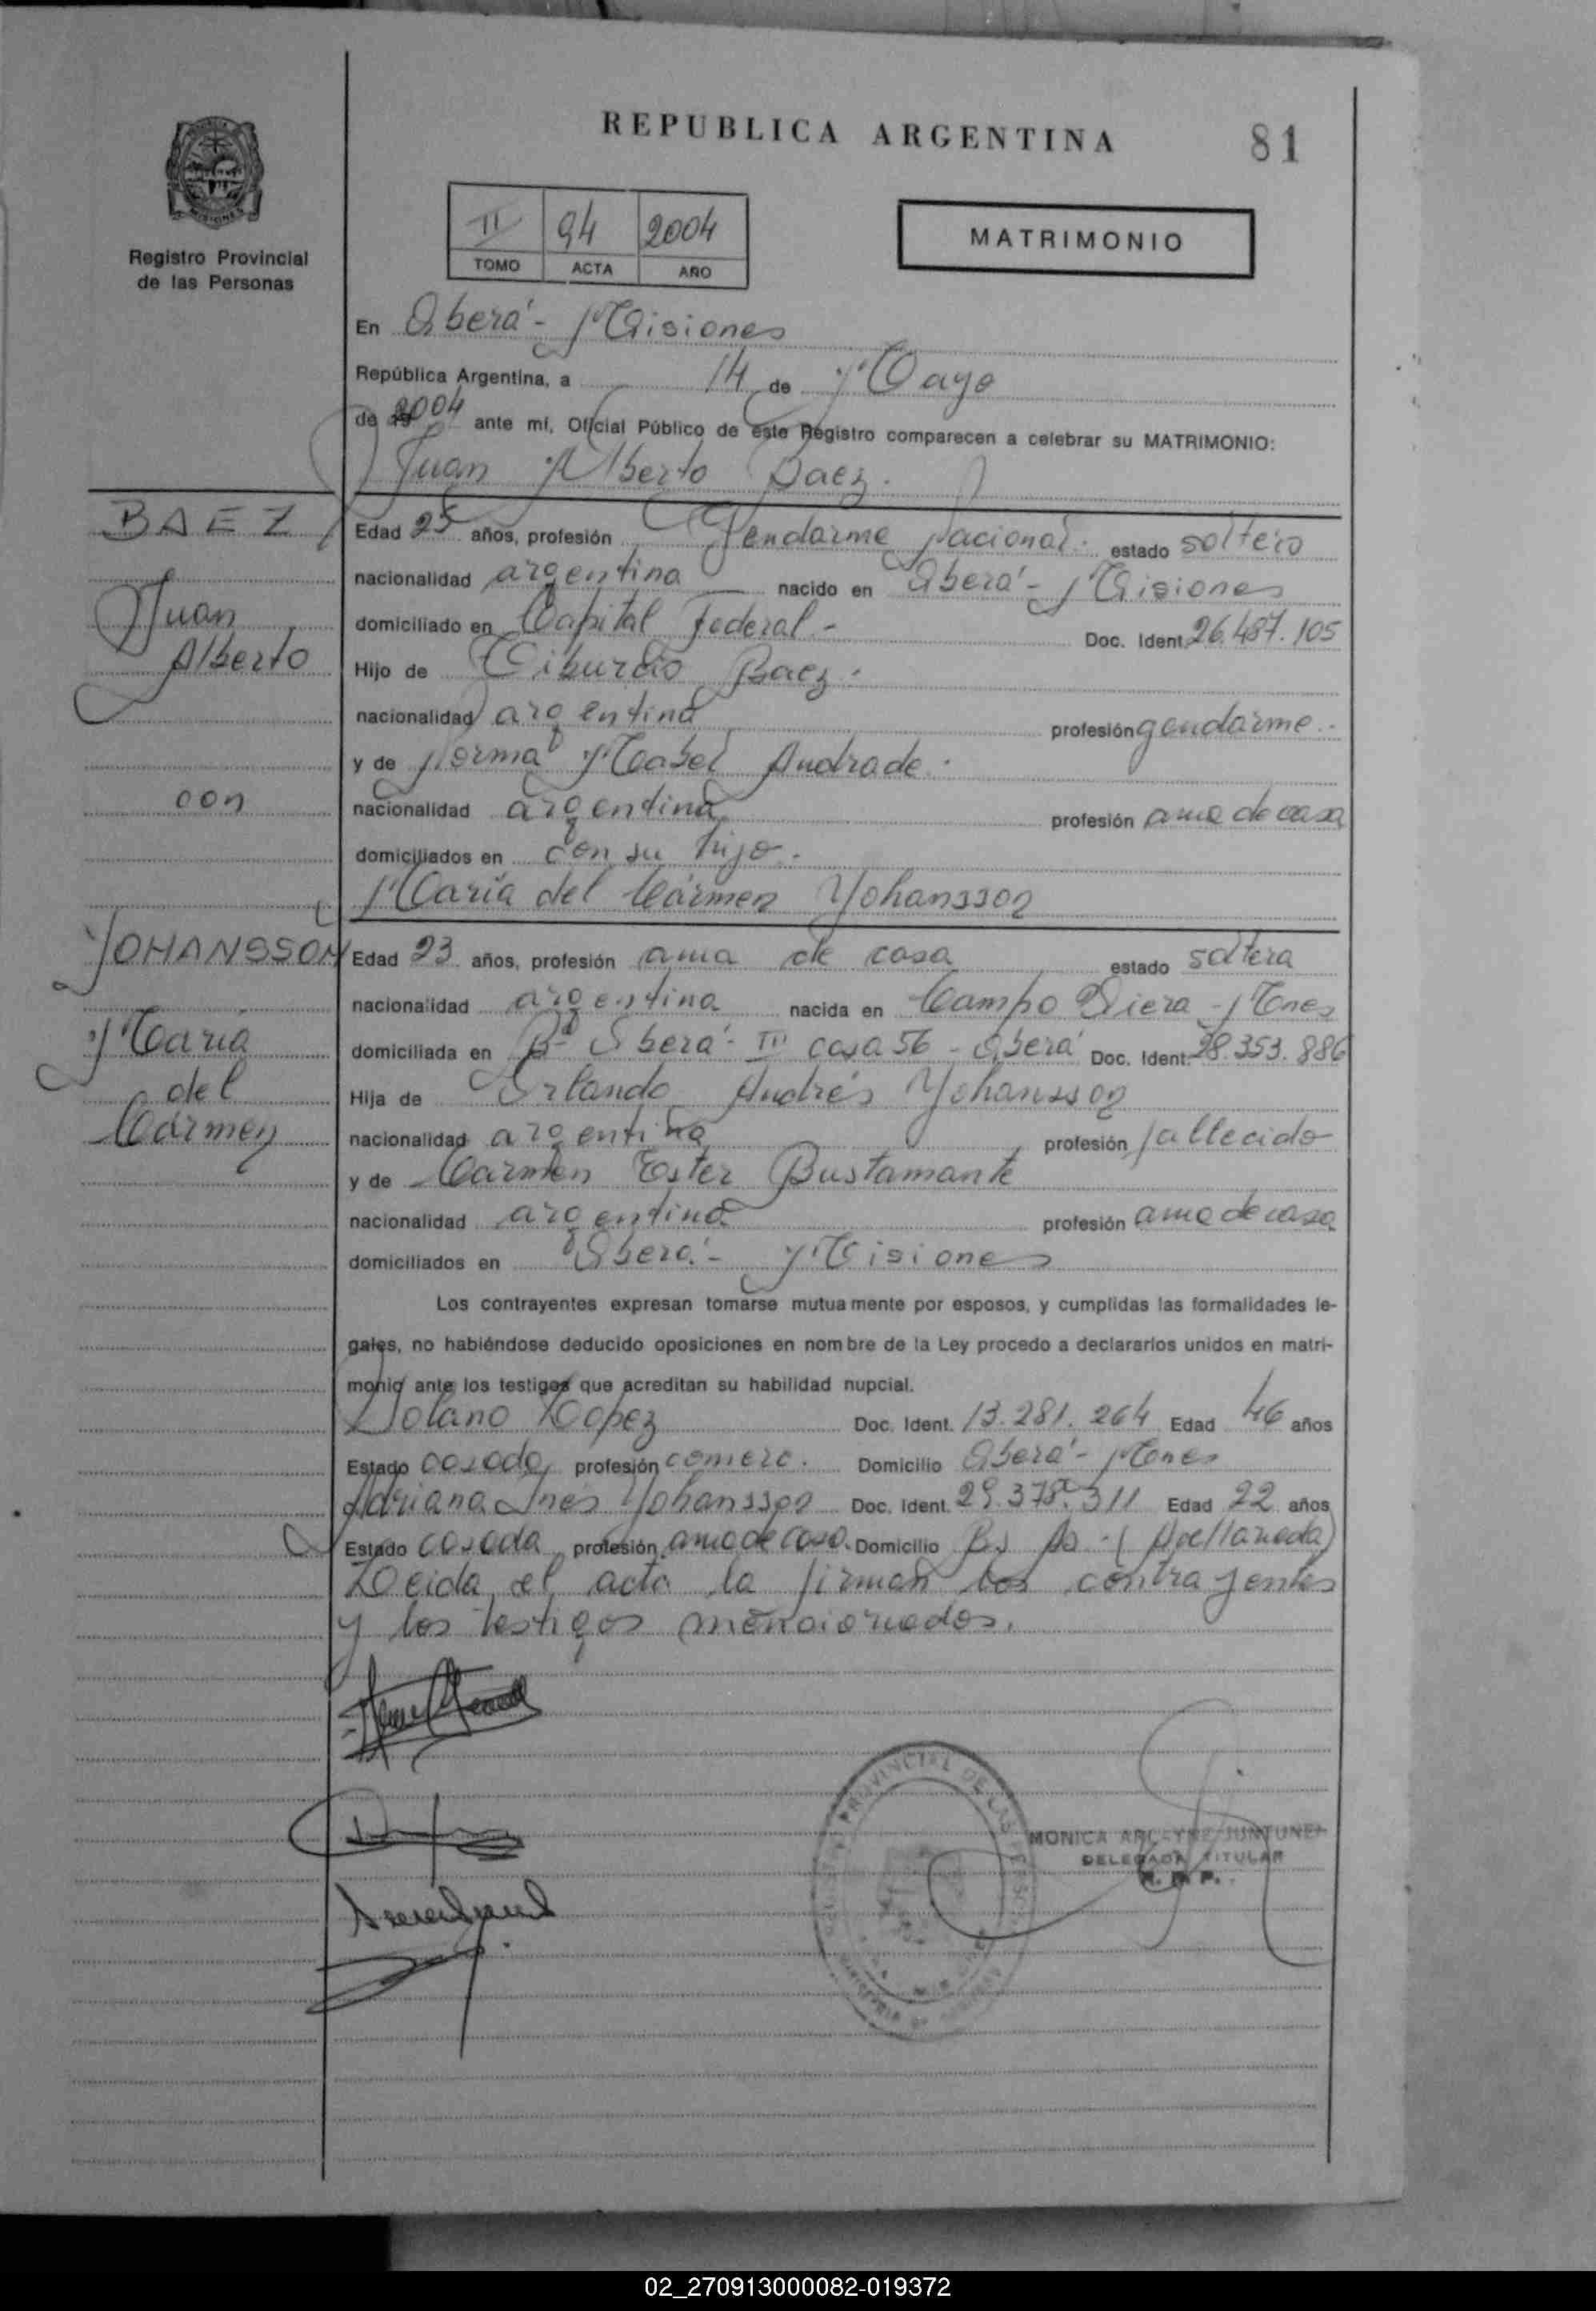 REPUBLICA ARGENTINA
81
Registro Provincial
de las Personas
II 94 2004
TOMO ACTA AÑO
MATRIMONIO
En Oberá - Misiones
República Argentina, a 14 de Mayo
de 2004 ante mí, Oficial Público de este Registro comparecen a celebrar su MATRIMONIO:
Juan Alberto Baez.
BAEZ
Juan
Alberto
con
YOHANSSON
María
del
Cármen
Edad 25 años, profesión Gendarme Nacional. estado soltero
nacionalidad argentina nacido en Oberá - Misiones
domiciliado en Capital Federal - Doc. Ident. 26.487.105
Hijo de Tiburcio Baez.
nacionalidad argentina profesión gendarme.
y de Norma Mabel Andrade.
nacionalidad argentina profesión ama de casa
domiciliados en con su hijo.
María del Cármen Yohansson
Edad 23 años, profesión ama de casa estado soltera
nacionalidad argentina nacida en Campo Viera - Mnes
domiciliada en Bº Oberá - III casa 56 - Oberá Doc. Ident. 28.353.886
Hija de Orlando Andrés Yohansson
nacionalidad argentina profesión fallecido
y de Carmen Ester Bustamante
nacionalidad argentina profesión ama de casa
domiciliados en Oberá - Misiones
Los contrayentes expresan tomarse mutuamente por esposos, y cumplidas las formalidades le-
gales, no habiéndose deducido oposiciones en nombre de la Ley procedo a declararlos unidos en matri-
monio ante los testigos que acreditan su habilidad nupcial.
Solano Lopez Doc. Ident. 13.281.264 Edad 46 años
Estado casado profesión comerc. Domicilio Oberá - Mones
Adriana Inés Yohansson Doc. Ident. 29.378.311 Edad 22 años
Estado casada profesión ama de casa. Domicilio Bs As - (Avellaneda)
Leida el acta la firman los contrayentes
y los testigos mencionados.
PROVINCIAL DE LAS
MONICA
DELEGADA TITULAR
R. P. P.
02_270913000082-019372